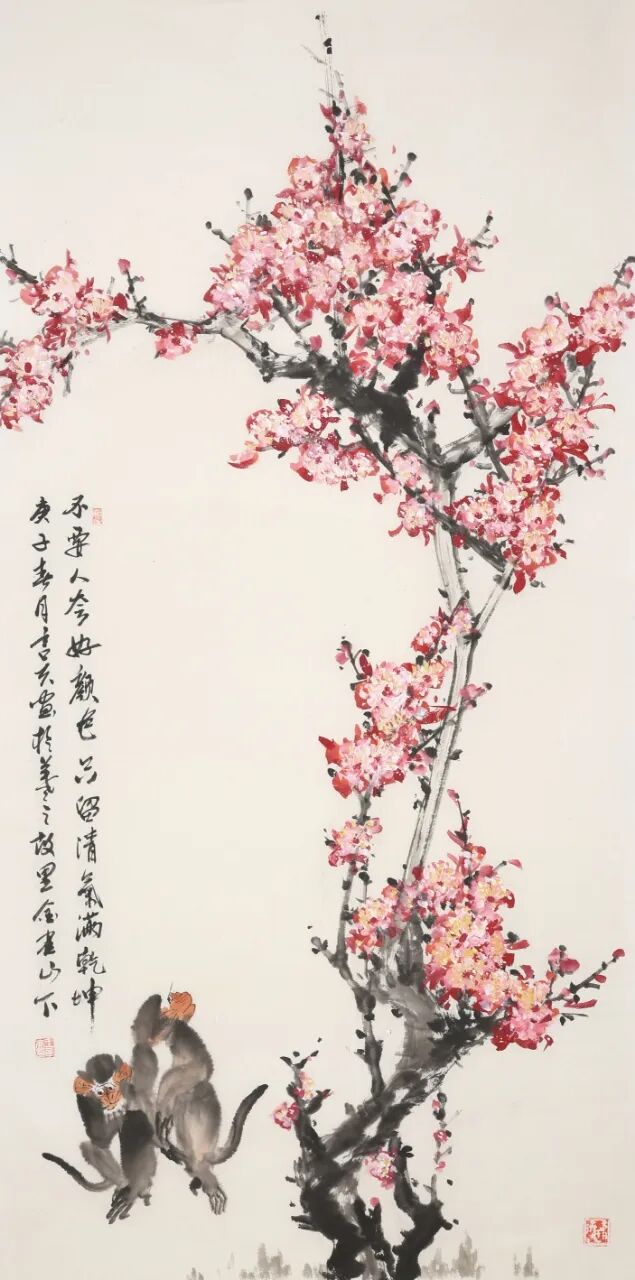 不要人夸好颜色只留清气满乾坤
庚子春月吉庆画于羲之故里金雀山下